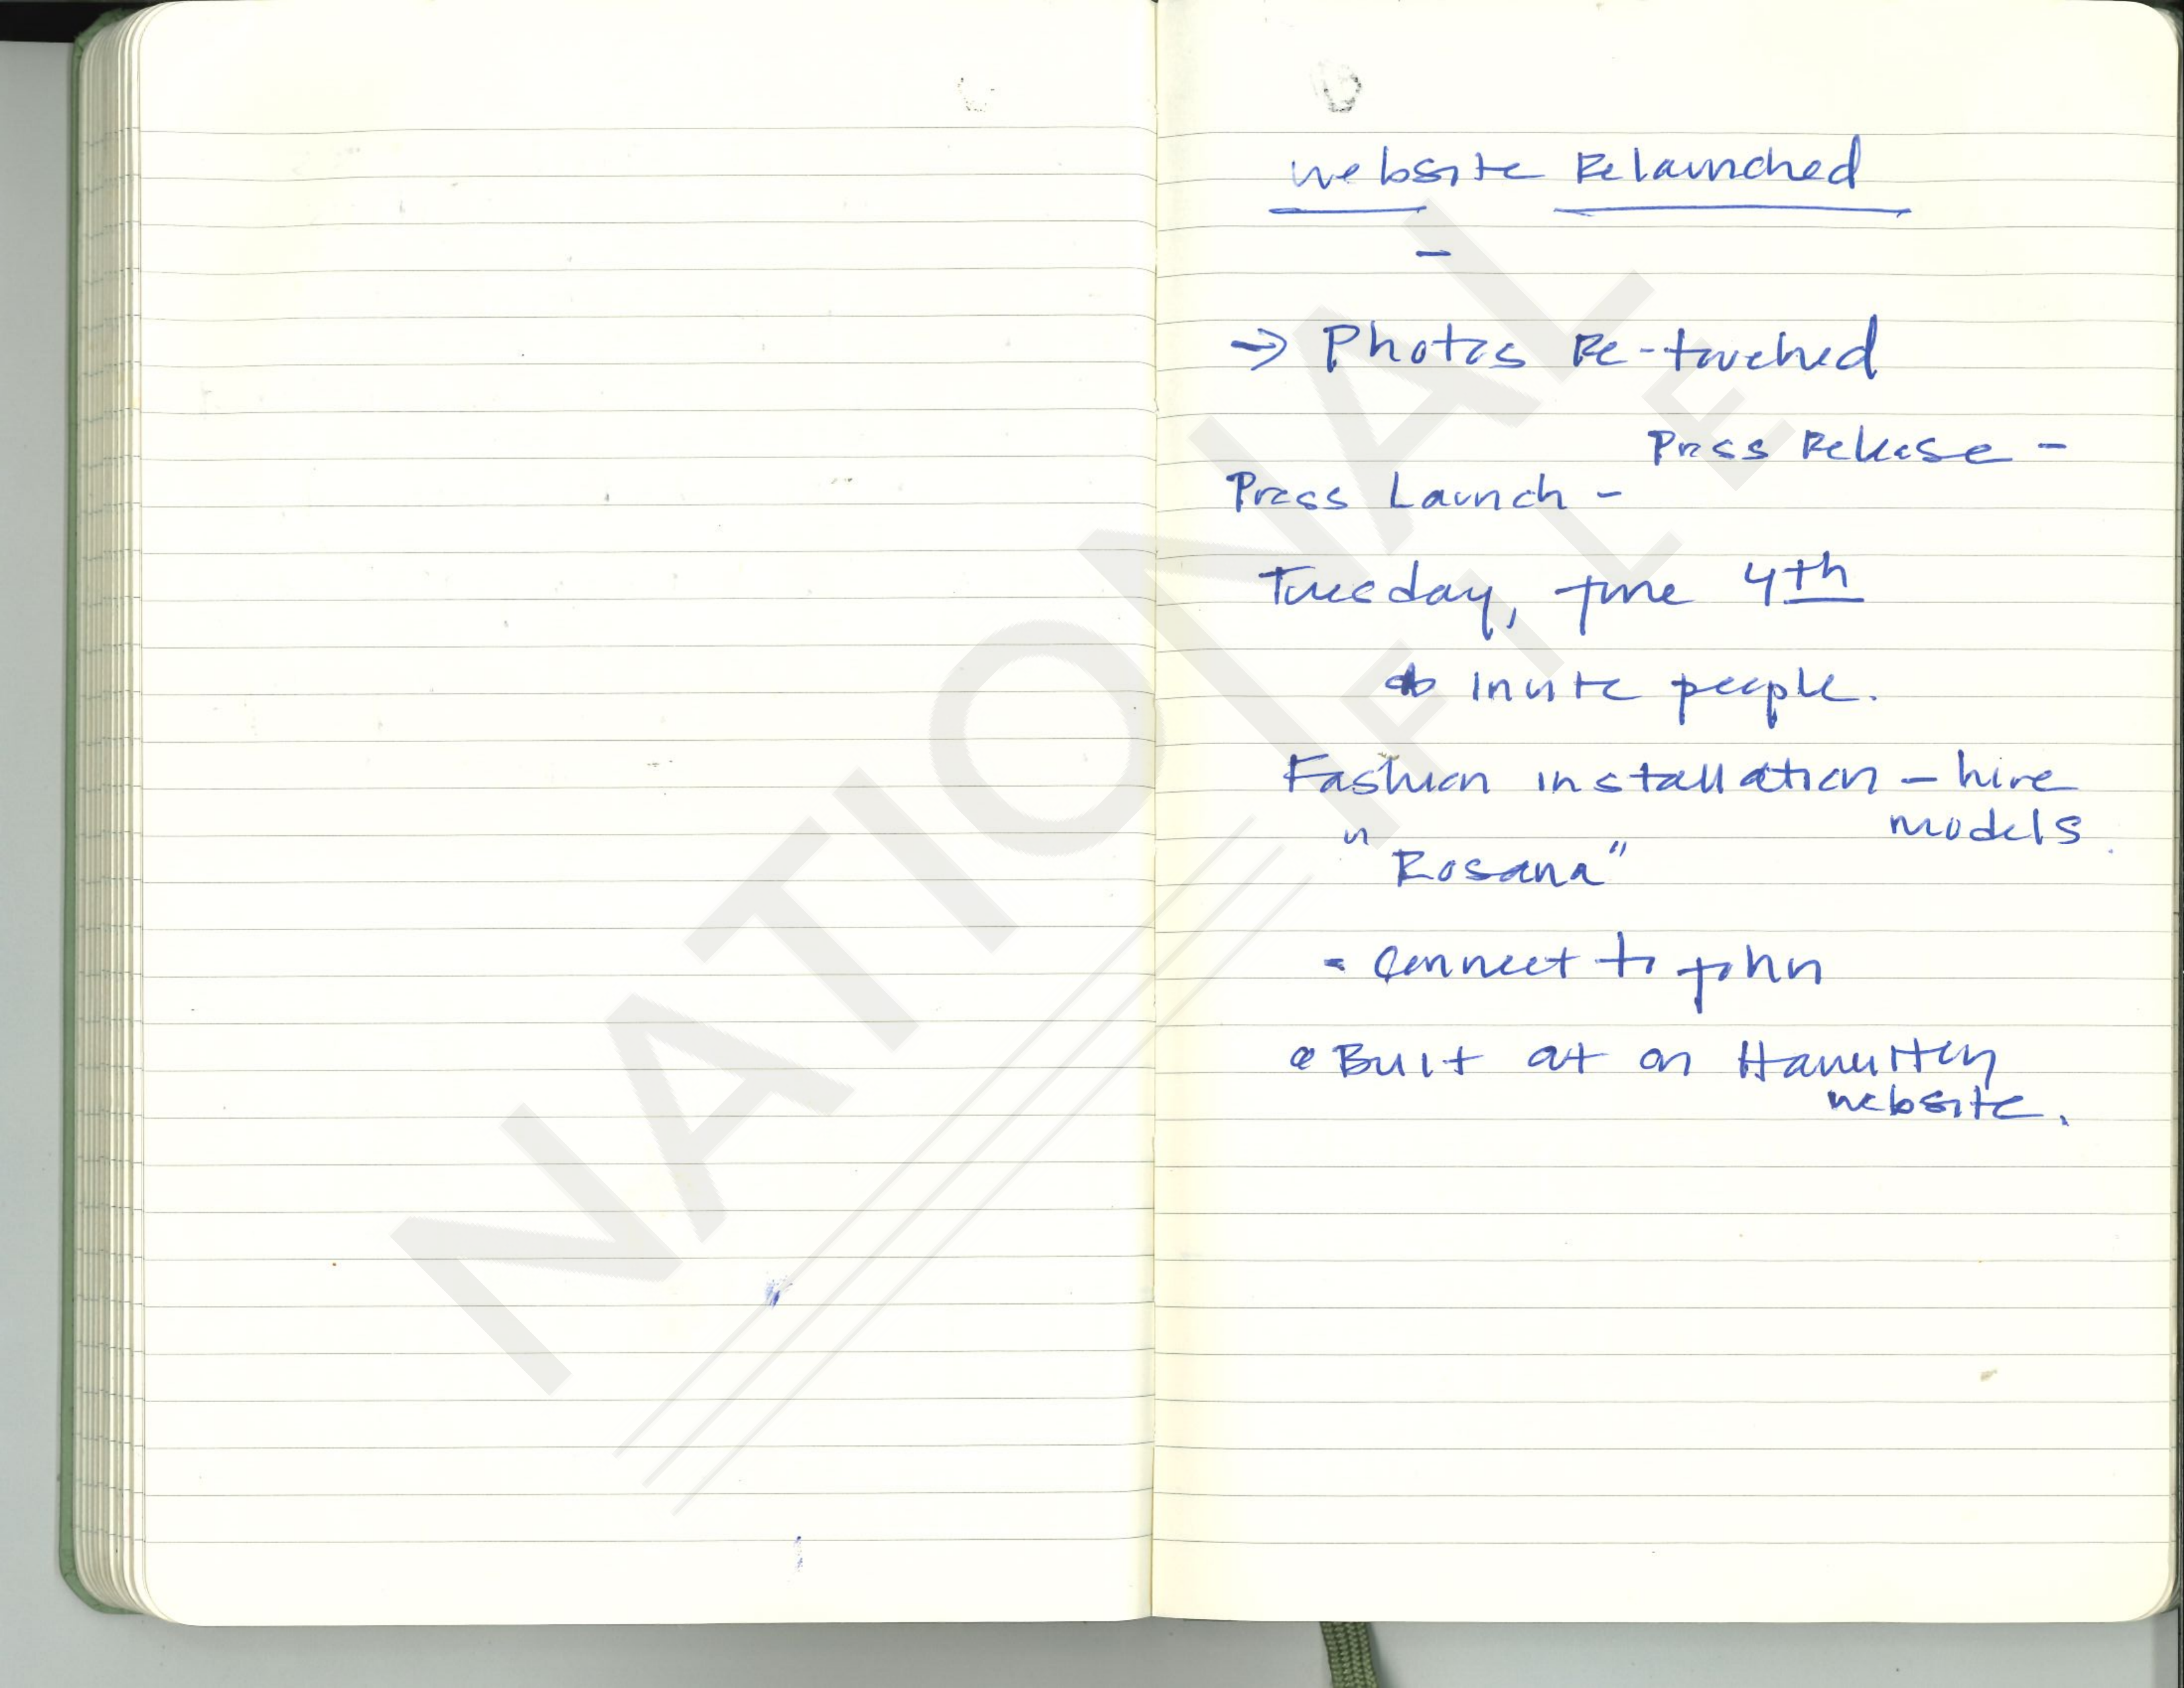 website Relaunched
-
→ Photos Re-touched
Press Release -
Press Launch -
Tuesday, June 4th
invite people.
Fashion installation - hire
models.
"Rosana"
- Connect to John
Built at on
website.
NATIONAL
FILE